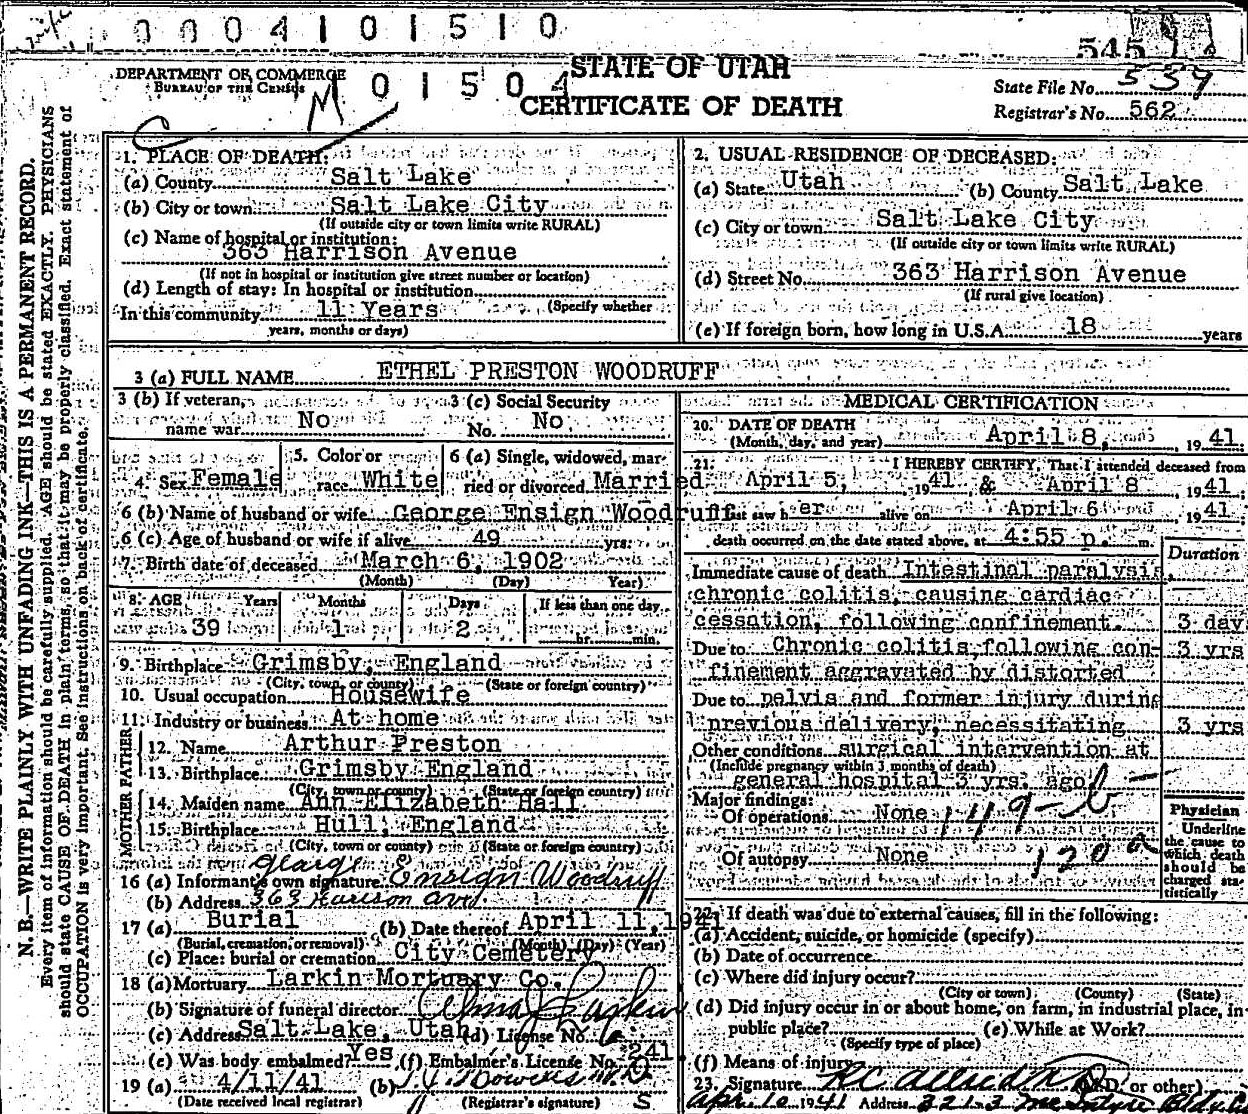 0 0 0 4 1 0 1 5 1 0
545
DEPARTMENT OF COMMERCE
BUREAU OF THE CENSUS
M 0 1 5 0 4
STATE OF UTAH
CERTIFICATE OF DEATH
State File No. 539
Registrar's No. 562
N. B.—WRITE PLAINLY WITH UNFADING INK—THIS IS A PERMANENT RECORD.
Every item of information should be carefully supplied. AGE should be stated EXACTLY. PHYSICIANS
should state CAUSE OF DEATH in plain terms, so that it may be properly classified. Exact statement of
OCCUPATION is very important. See instructions on back of certificate.
1. PLACE OF DEATH:
(a) County Salt Lake
(b) City or town Salt Lake City
(If outside city or town limits write RURAL)
(c) Name of hospital or institution:
363 Harrison Avenue
(If not in hospital or institution give street number or location)
(d) Length of stay: In hospital or institution
(Specify whether
In this community 11 Years
years, months or days)
2. USUAL RESIDENCE OF DECEASED:
(a) State Utah (b) County Salt Lake
(c) City or town Salt Lake City
(If outside city or town limits write RURAL)
(d) Street No. 363 Harrison Avenue
(If rural give location)
(e) If foreign born, how long in U.S.A. 18 years
3 (a) FULL NAME ETHEL PRESTON WOODRUFF
3 (b) If veteran, name war No
3 (c) Social Security No. No
4. Sex Female
5. Color or race White
6 (a) Single, widowed, married or divorced Married
6 (b) Name of husband or wife George Ensign Woodruff
6 (c) Age of husband or wife if alive 49 yrs.
7. Birth date of deceased March 6, 1902
(Month) (Day) Year)
8. AGE Years Months Days If less than one day
39 1 2 hr. min.
9. Birthplace Grimsby, England
(City, town, or county) (State or foreign country)
10. Usual occupation Housewife
11. Industry or business At home
FATHER
12. Name Arthur Preston
13. Birthplace Grimsby England
(City, town or county) (State or foreign country)
MOTHER
14. Maiden name Ann Elizabeth Hall
15. Birthplace Hull, England
(City, town or county) (State or foreign country)
16 (a) Informant's own signature George Ensign Woodruff
(b) Address 363 Harison Ave.
17 (a) Burial (b) Date thereof April 11, 1941
(Burial, cremation, or removal) (Month) (Day) (Year)
(c) Place: burial or cremation City Cemetery
18 (a) Mortuary Larkin Mortuary Co.
(b) Signature of funeral director Alma J Larkin
(c) Address Salt Lake, Utah (d) License No. 6
(e) Was body embalmed? Yes (f) Embalmer's License No. 241.
19 (a) 4/11/41 (b)
(Date received local registrar) (Registrar's signature) S
MEDICAL CERTIFICATION
20. DATE OF DEATH
(Month, day, and year) April 8, 1941.
21. I HEREBY CERTIFY, That I attended deceased from
April 5, 1941 & April 8 1941.
last saw her alive on April 6 1941.
death occurred on the date stated above, at 4:55 p. m.
Duration
Immediate cause of death Intestinal paralysis,
chronic colitis, causing cardiac
cessation, following confinement. 3 day
Due to Chronic colitis, following con- 3 yrs
finement aggravated by distorted
Due to pelvis and former injury during
previous delivery, necessitating 3 yrs
Other conditions surgical intervention at
(Include pregnancy within 3 months of death)
general hospital 3 yrs. ago
Major findings:
Of operations None 149-b
Of autopsy None 120a
Physician
Underline
the cause to
which death
should be
charged sta-
tistically
22. If death was due to external causes, fill in the following:
(a) Accident, suicide, or homicide (specify)
(b) Date of occurrence
(c) Where did injury occur?
(City or town) (County) (State)
(d) Did injury occur in or about home, on farm, in industrial place, in
public place? (e) While at Work?
(Specify type of place)
(f) Means of injury
23. Signature R C Allred M D (M.D. or other)
Apr. 10 1941 Address 321-3 McIntyre Bldg.